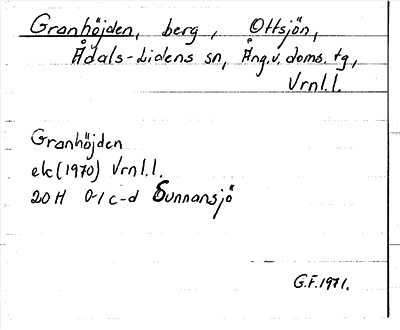 Granhöjden, berg, Ottsjön,
Ådals-Lidens sn, Ång.v. doms. tg,
Vrnl.l.
Granhöjden
ek (1970) Vrnl.l.
20 H 0-1 c-d Sunnansjö
G.F. 1971.